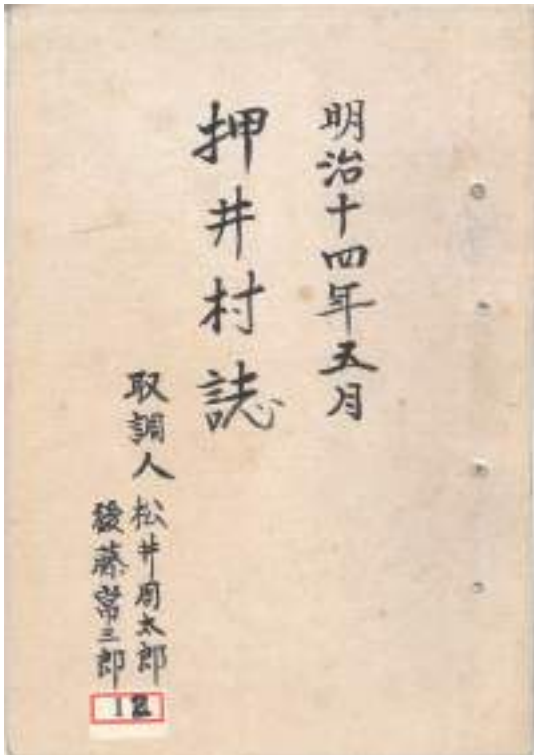 明治十四年五月
押井村誌
取調人 松井周太郎
後藤常三郎
12